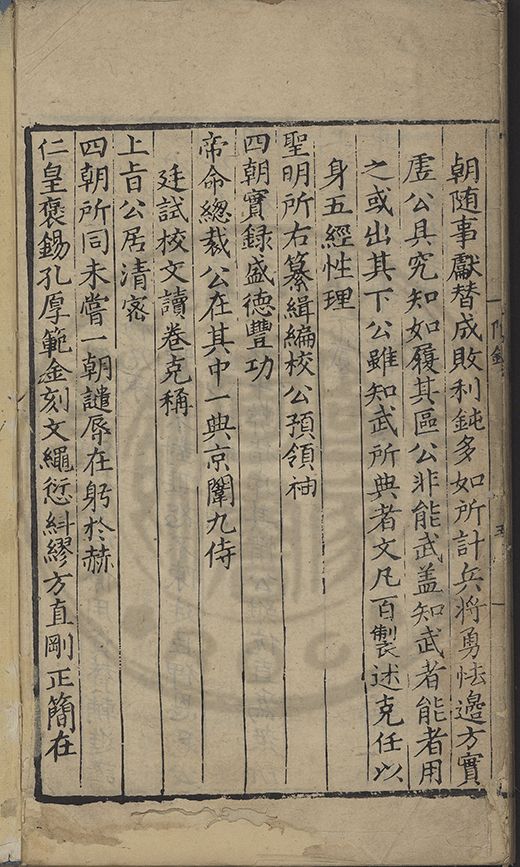 朝随事獻替成敗利鈍多如所計兵將勇怯邊方實
虗公具究知如履其區公非能武盖知武者能者用
之或出其下公雖知武所典者文凡百製述克任以
身五經性理
聖明所右纂緝編校公預領袖
四朝實録盛德豐功
帝命緫裁公在其中一典京闈九侍
廷試校文讀卷克稱
上旨公居清宻
四朝所同未嘗一朝譴辱在躬於赫
仁皇褒錫孔厚範金刻文繩愆糾繆方直剛正簡在